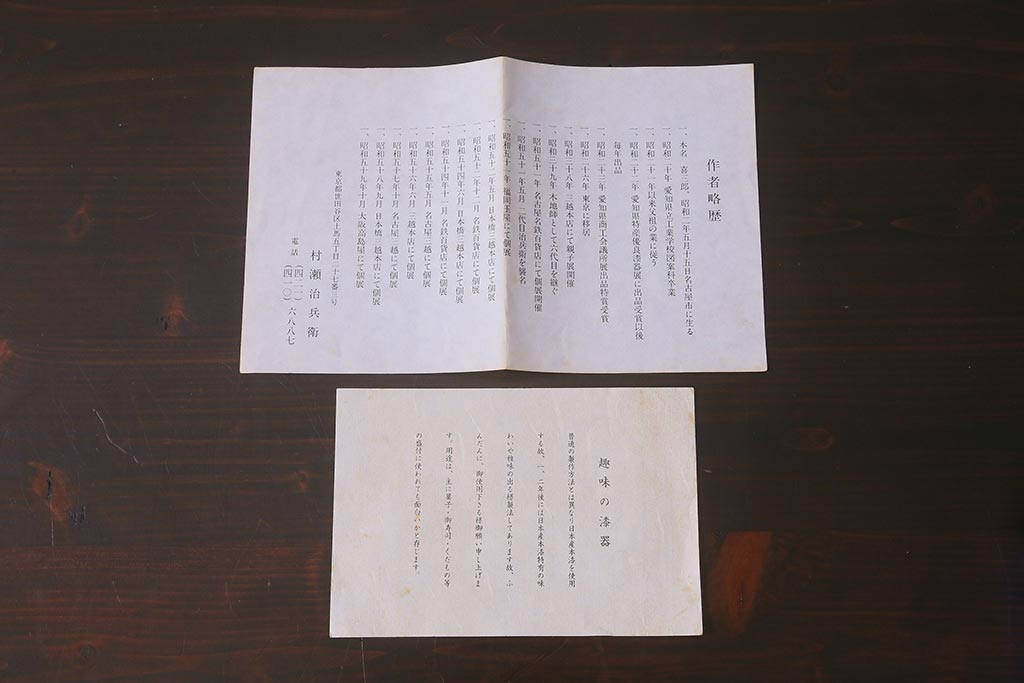 作者略歴
一、本名　喜三郎。昭和二年五月十五日名古屋市に生る
一、昭和二十年 愛知県立工業学校図案科卒業
一、昭和二十一年以来父祖の業に従う
一、昭和二十二年 愛知県特産優良漆器展に出品受賞以後
毎年出品
一、昭和二十三年 愛知県商工会議所展出品特賞受賞
一、昭和二十六年 東京に移居
一、昭和二十八年 三越本店にて親子展開催
一、昭和三十九年 木地師として六代目を継ぐ
一、昭和五十一年 名古屋名鉄百貨店にて個展開催
一、昭和五十一年五月 二代目治兵衛を襲名
一、昭和五十一年 福岡玉屋にて個展
一、昭和五十二年五月 日本橋三越本店にて個展
一、昭和五十二年十二月 名鉄百貨店にて個展
一、昭和五十四年六月 日本橋三越本店にて個展
一、昭和五十四年十一月 名鉄百貨店にて個展
一、昭和五十五年五月 名古屋三越にて個展
一、昭和五十六年六月 三越本店にて個展
一、昭和五十七年十月 名古屋三越にて個展
一、昭和五十八年九月 日本橋三越本店にて個展
一、昭和五十九年十月 大阪高島屋にて個展
東京都世田谷区上馬五丁目二十七番三号
村瀬治兵衛
電話 （四二一）
（四一〇）六八八七
趣味の漆器
普通の製作方法とは異なり日本産本漆を使用
する故、一、二年後には日本産本漆特有の味
わいや雅味の出る様製法してあります故、ふ
んだんに、御使用下さる様御願い申し上げま
す。用途は、主に菓子・御寿司・くだもの等
の盛付に使われても面白いかと存じます。